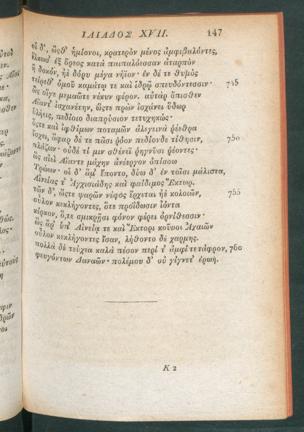 ΙΛΙΑΔΟΣ XVII. 147
οἱ δ', ὥσθ' ἡμίονοι, κρατερὸν μένος ἀμφιβαλόντες,
ἕλκωσ' ἐξ ὄρεος κατὰ παιπαλόεσσαν ἀταρπὸν
ἢ δοκὸν, ἠὲ δόρυ μέγα νήϊον· ἐν δέ τε θυμὸς
τείρεθ' ὁμοῦ καμάτῳ τε καὶ ἱδρῷ σπευδόντεσσιν· 745
ὣς οἵγε μεμαῶτε νέκυν φέρον. αὐτὰρ ὄπισθεν
Αἴαντ' ἰσχανέτην, ὥστε πρὼν ἰσχάνει ὕδωρ
ὑλήεις, πεδίοιο διαπρύσιον τετυχηκώς·
ὅστε καὶ ἰφθίμων ποταμῶν ἀλεγεινὰ ῥέεθρα
ἴσχει, ἄφαρ δέ τε πᾶσι ῥόον πεδίονδε τίθησιν, 750
πλάζων· οὐδέ τί μιν σθένεϊ ῥηγνῦσι ῥέοντες·
ὣς αἰεὶ Αἴαντε μάχην ἀνέεργον ὀπίσσω
Τρώων· οἱ δ' ἅμ' ἕποντο, δύω δ' ἐν τοῖσι μάλιστα,
Αἰνείας τ' Ἀγχισιάδης καὶ φαίδιμος Ἕκτωρ.
τῶν δ', ὥστε ψαρῶν νέφος ἔρχεται ἠὲ κολοιῶν, 755
οὖλον κεκλήγοντες, ὅτε προΐδωσιν ἰόντα
κίρκον, ὅ,τε σμικρῇσι φόνον φέρει ὀρνίθεσσιν·
ὣς ἄρ' ὑπ' Αἰνείᾳ τε καὶ Ἕκτορι κοῦροι Ἀχαιῶν
οὖλον κεκλήγοντες ἴσαν, λήθοντο δὲ χάρμης.
πολλὰ δὲ τεύχεα καλὰ πέσον περί τ' ἀμφί τε τάφρον, 760
φευγόντων Δαναῶν· πολέμου δ' οὐ γίγνετ' ἐρωή.
K 2